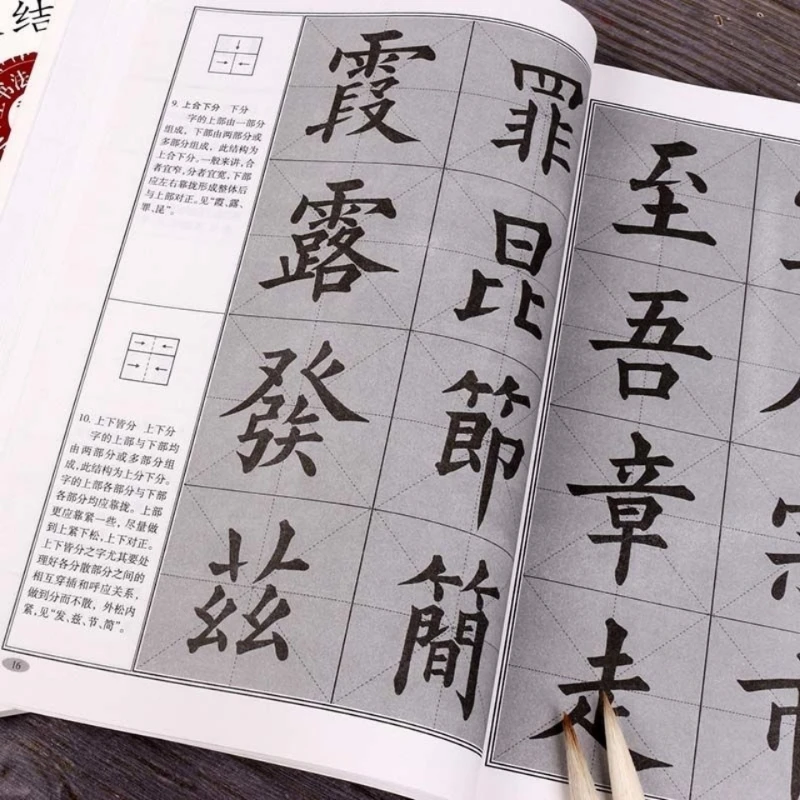 结
书法
9. 上合下分 下分
字的上部由一部分
组成，下部由两部分或
多部分组成，此结构为
上合下分。一般来讲，合
者宜窄，分者宜宽，下部
应左右靠拢形成整体后
与上部对正。见“霞、露、
罪、昆”。
霞 罪
露 昆
10. 上下皆分 上下分
字的上部与下部均
由两部分或多部分组
成，此结构为上分下分。
字的上部各部分与下部
各部分均应靠拢。上部
更应靠紧一些，尽量做
到上紧下松，上下对正。
上下皆分之字尤其要处
理好各分散部分之间的
相互穿插和呼应关系，
做到分而不散，外松内
紧，见“发、兹、节、简”。
發 節
茲 簡
16
至
吾
章
走